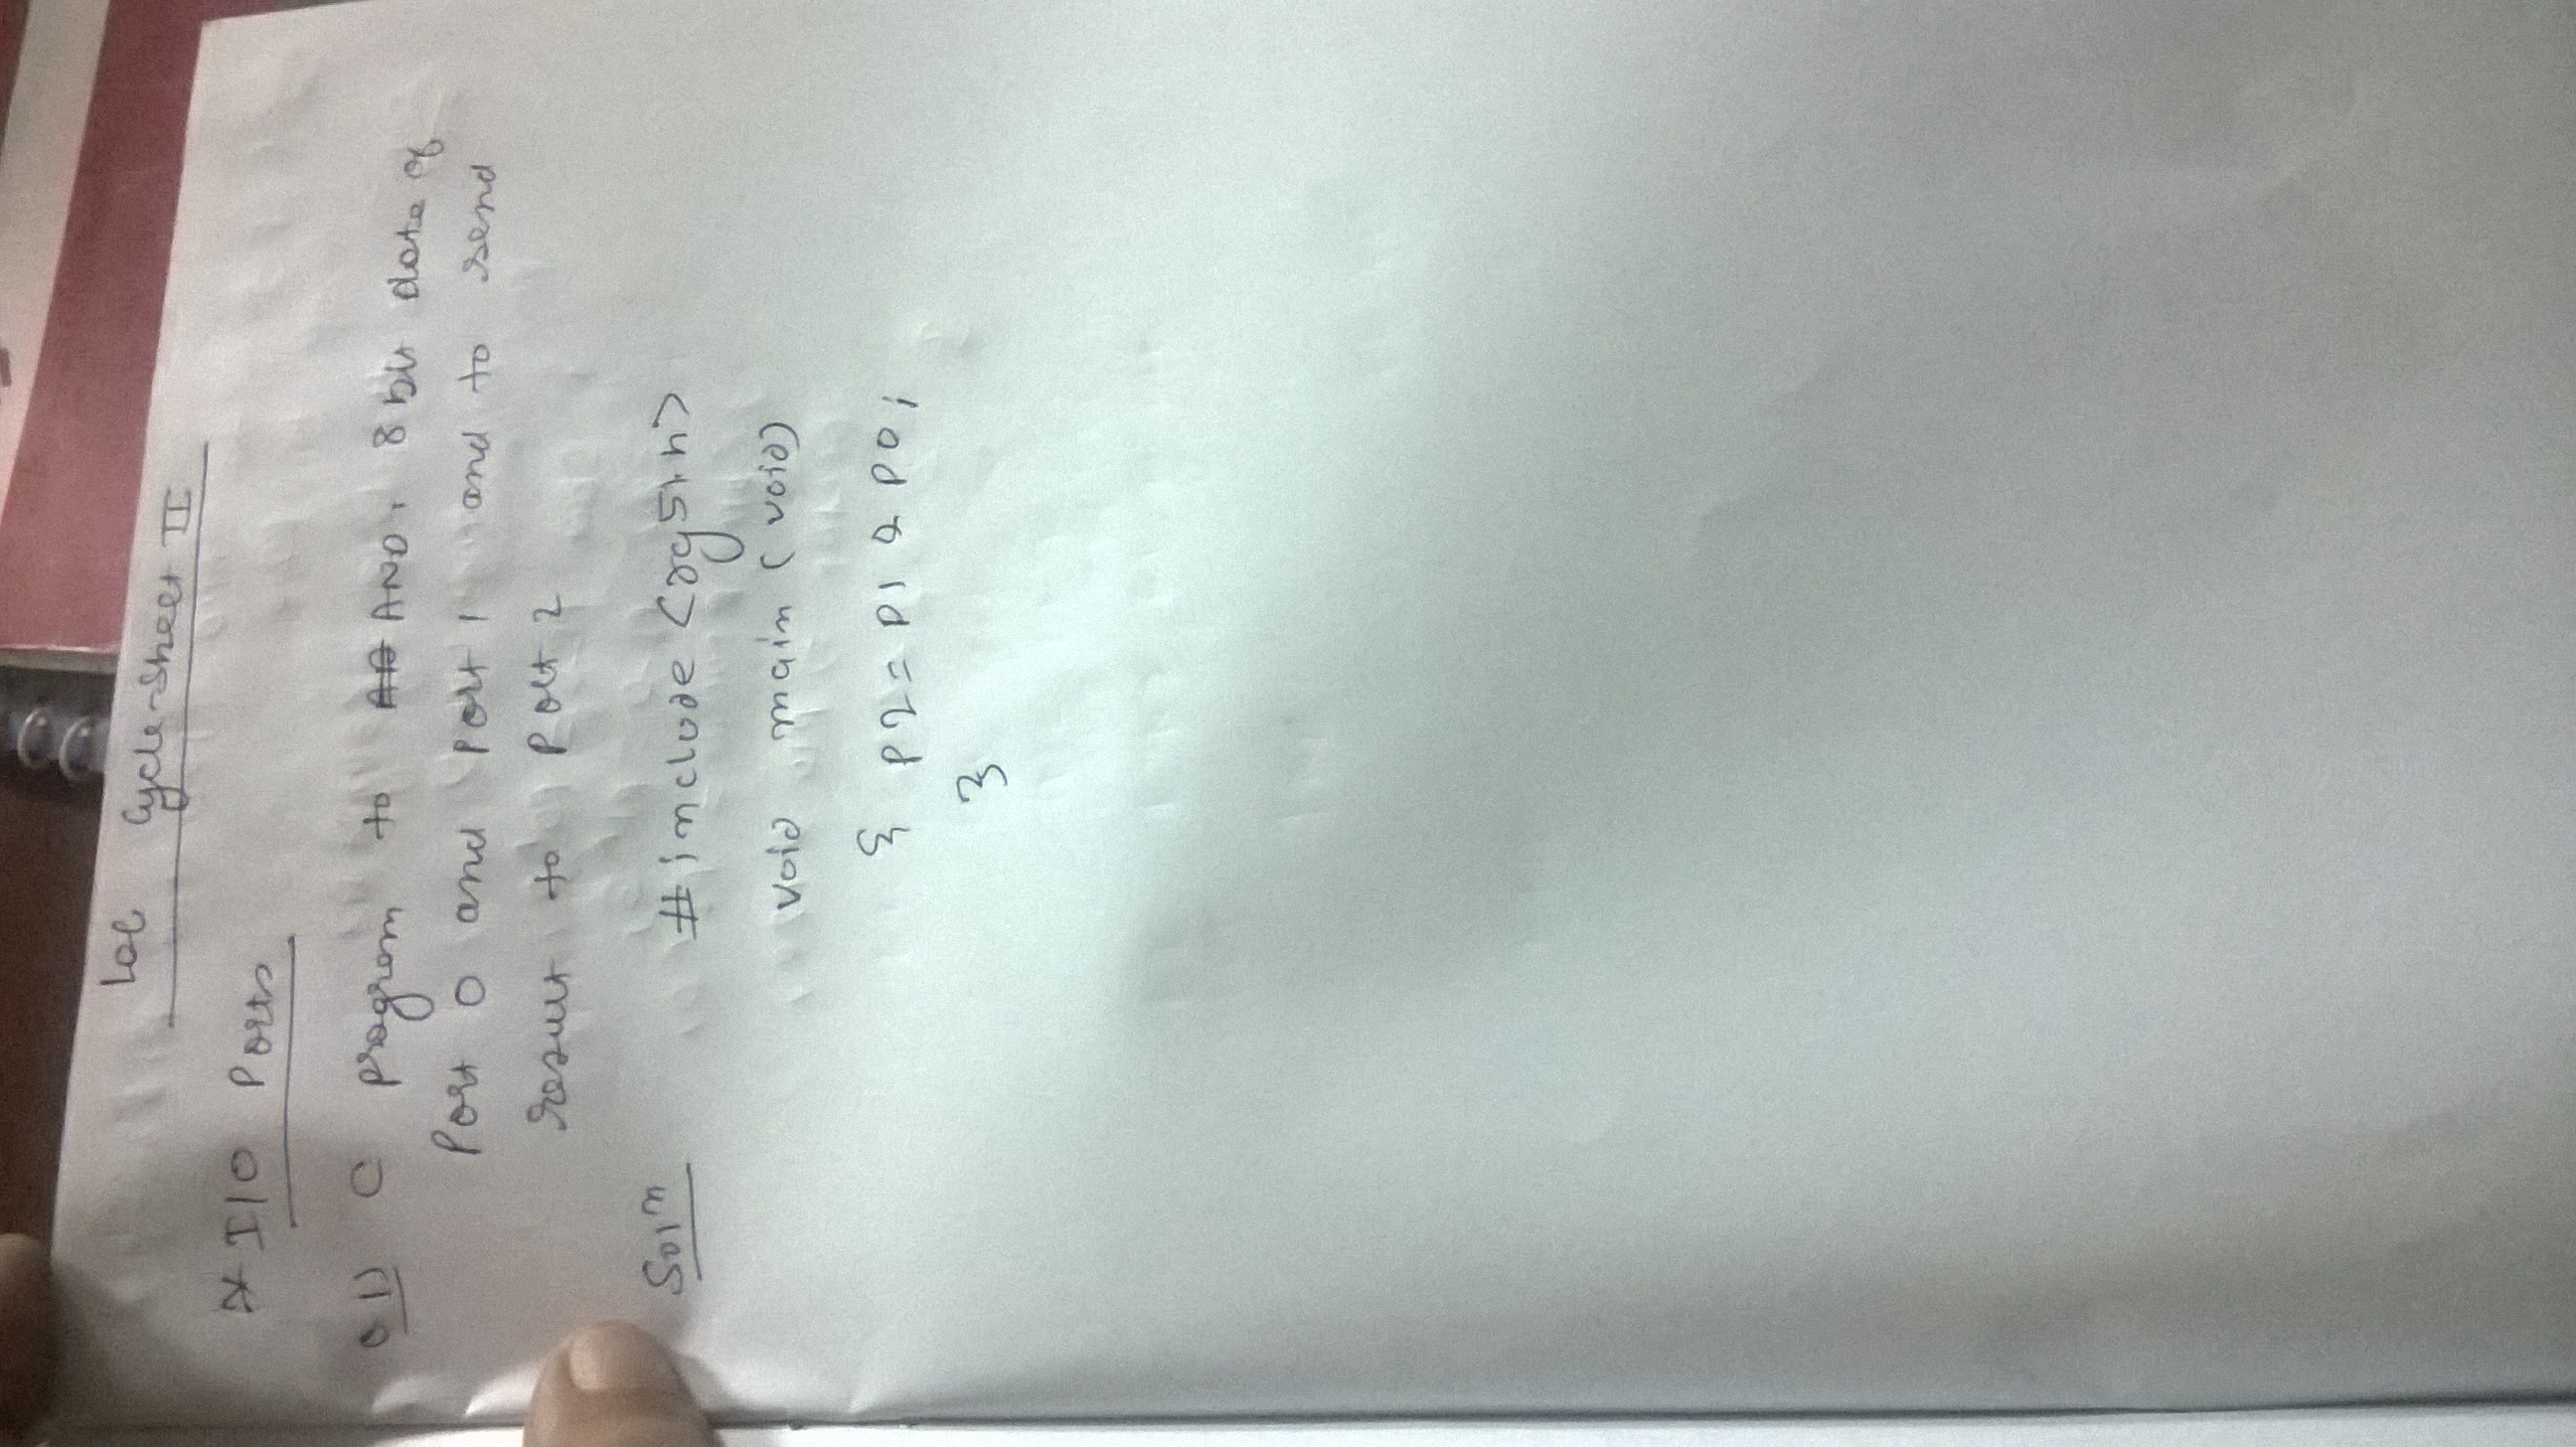 Lab Cycle-Sheet II
* I/O Ports
Q 1) C Program to AND. 8 bit data of
Port 0 and Port 1 and to send
result to Port 2
Soln
#include <reg51.h>
void main (void)
{ P2 = P1 & P0;
}